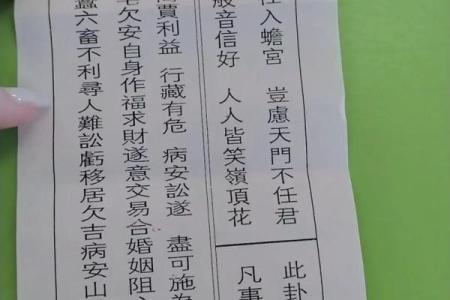 入蟾宮 豈慮天門不任君
般音信好 人人皆笑嶺頂花
此卦
凡事
賈利益 行藏有危 病安訟遂 盡可施為
欠安自身作福求財遂意交易合婚姻阻
蠶六畜不利尋人難訟虧移居欠吉病安山